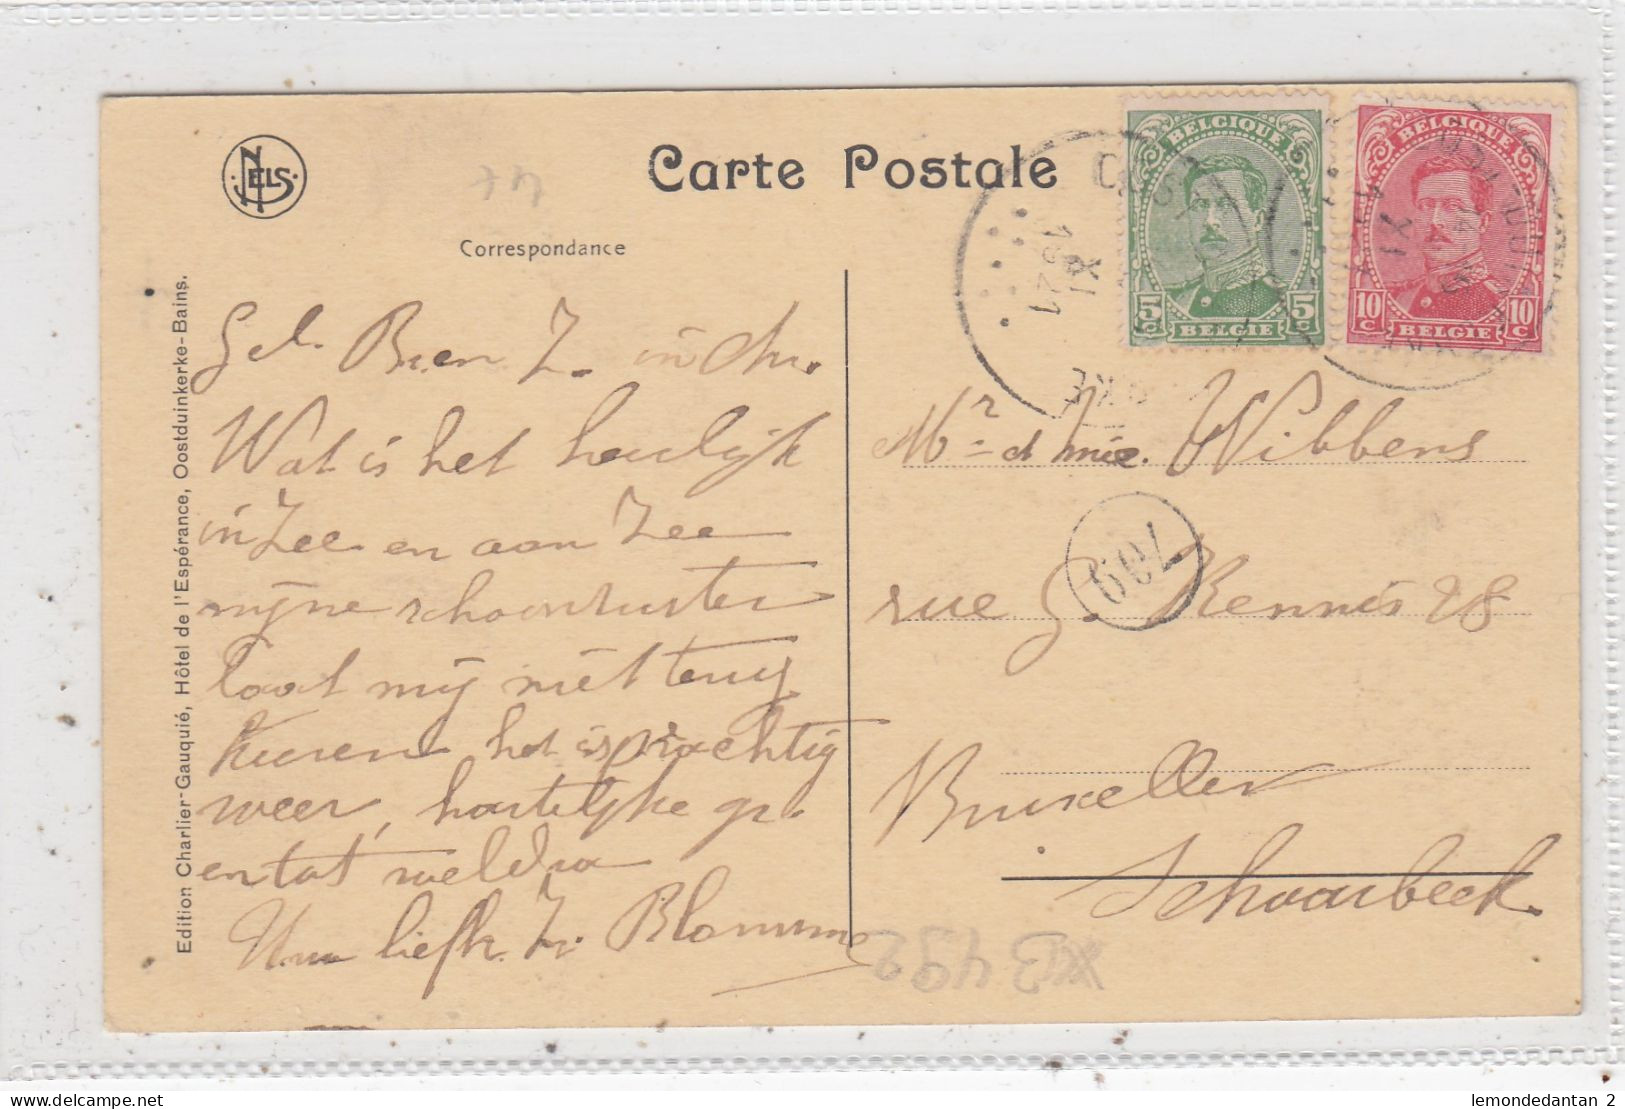 NELS
Carte Postale
Correspondance
Edition Charlier-Gauquié, Hôtel de l'Espérance, Oostduinkerke-Bains.
BELGIQUE
5c 5c
BELGIË
BELGIQUE
10c 10c
BELGIË
Gel. Br. en Z. in Chr.
Wat is het heerlijk
in Zee en aan Zee
mijne schoonzuster
laat mij niet terug
keeren, het is prachtig
weer, hartelijke gr.
en tot weldra
Uw liefh. Zr. Blomme
Mr et Mme. Wibbens
rue G. Kennis 28
Bruxelles
Schaarbeek.
709
B 492
lemondedantan 2
delcampe.net